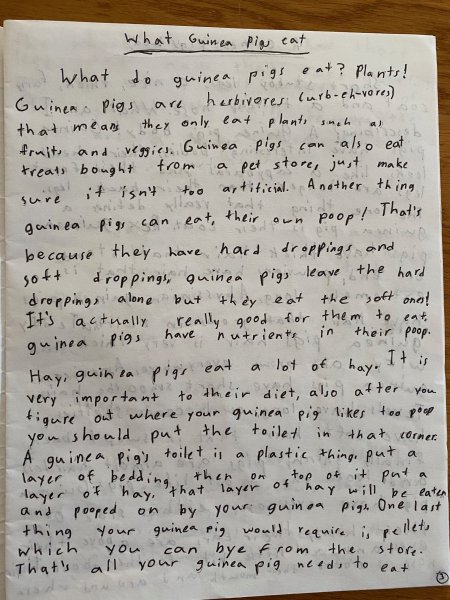 What Guinea Pigs eat
What do guinea pigs eat? Plants!
Guinea pigs are herbivores (urb-eh-vores)
that means they only eat plants such as
fruits and veggies. Guinea pigs can also eat
treats bought from a pet store, just make
sure it isn't too artificial. Another thing
guinea pigs can eat, their own poop! That's
because they have hard droppings and
soft droppings, guinea pigs leave the hard
droppings alone but they eat the soft ones!
It's actually really good for them to eat,
guinea pigs have nutrients in their poop.
Hay, guinea pigs eat a lot of hay. It is
very important to their diet, also after you
figure out where your guinea pig likes too poop
you should put the toilet in that corner.
A guinea pig's toilet is a plastic thing, put a
layer of bedding, then on top of it put a
layer of hay, that layer of hay will be eaten
and pooped on by your guinea pigs. One last
thing your guinea pig would require is pellets
which you can bye from the store.
That's all your guinea pig needs to eat
3